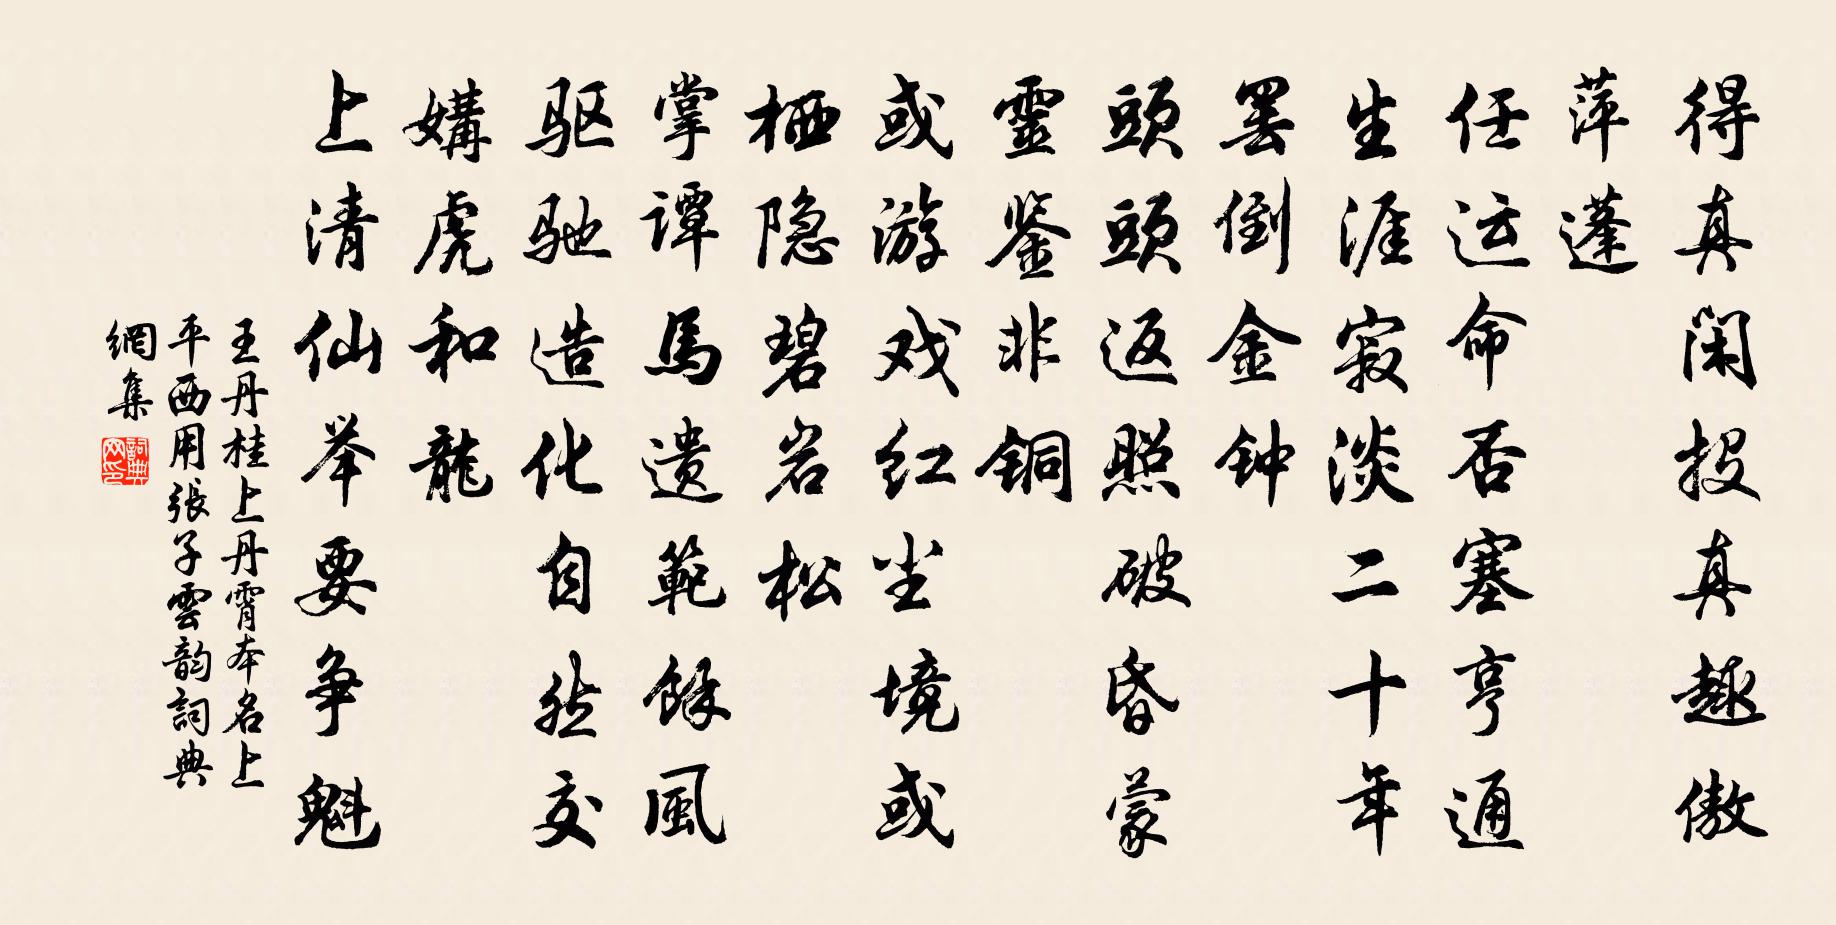 得真闲投真趣傲
萍蓬
任运命否塞亨通
生涯寂淡二十年
罢倒金钟
頭頭返照破昏蒙
靈鉴非铜
或游戏红尘境或
栖隐碧岩松
掌谭馬遗範馀風
驱驰造化自然交
媾虎和龍
上清仙举要争魁
王丹桂上丹霄本名上
平西用張子雲韵詞典
網集
詞典网印